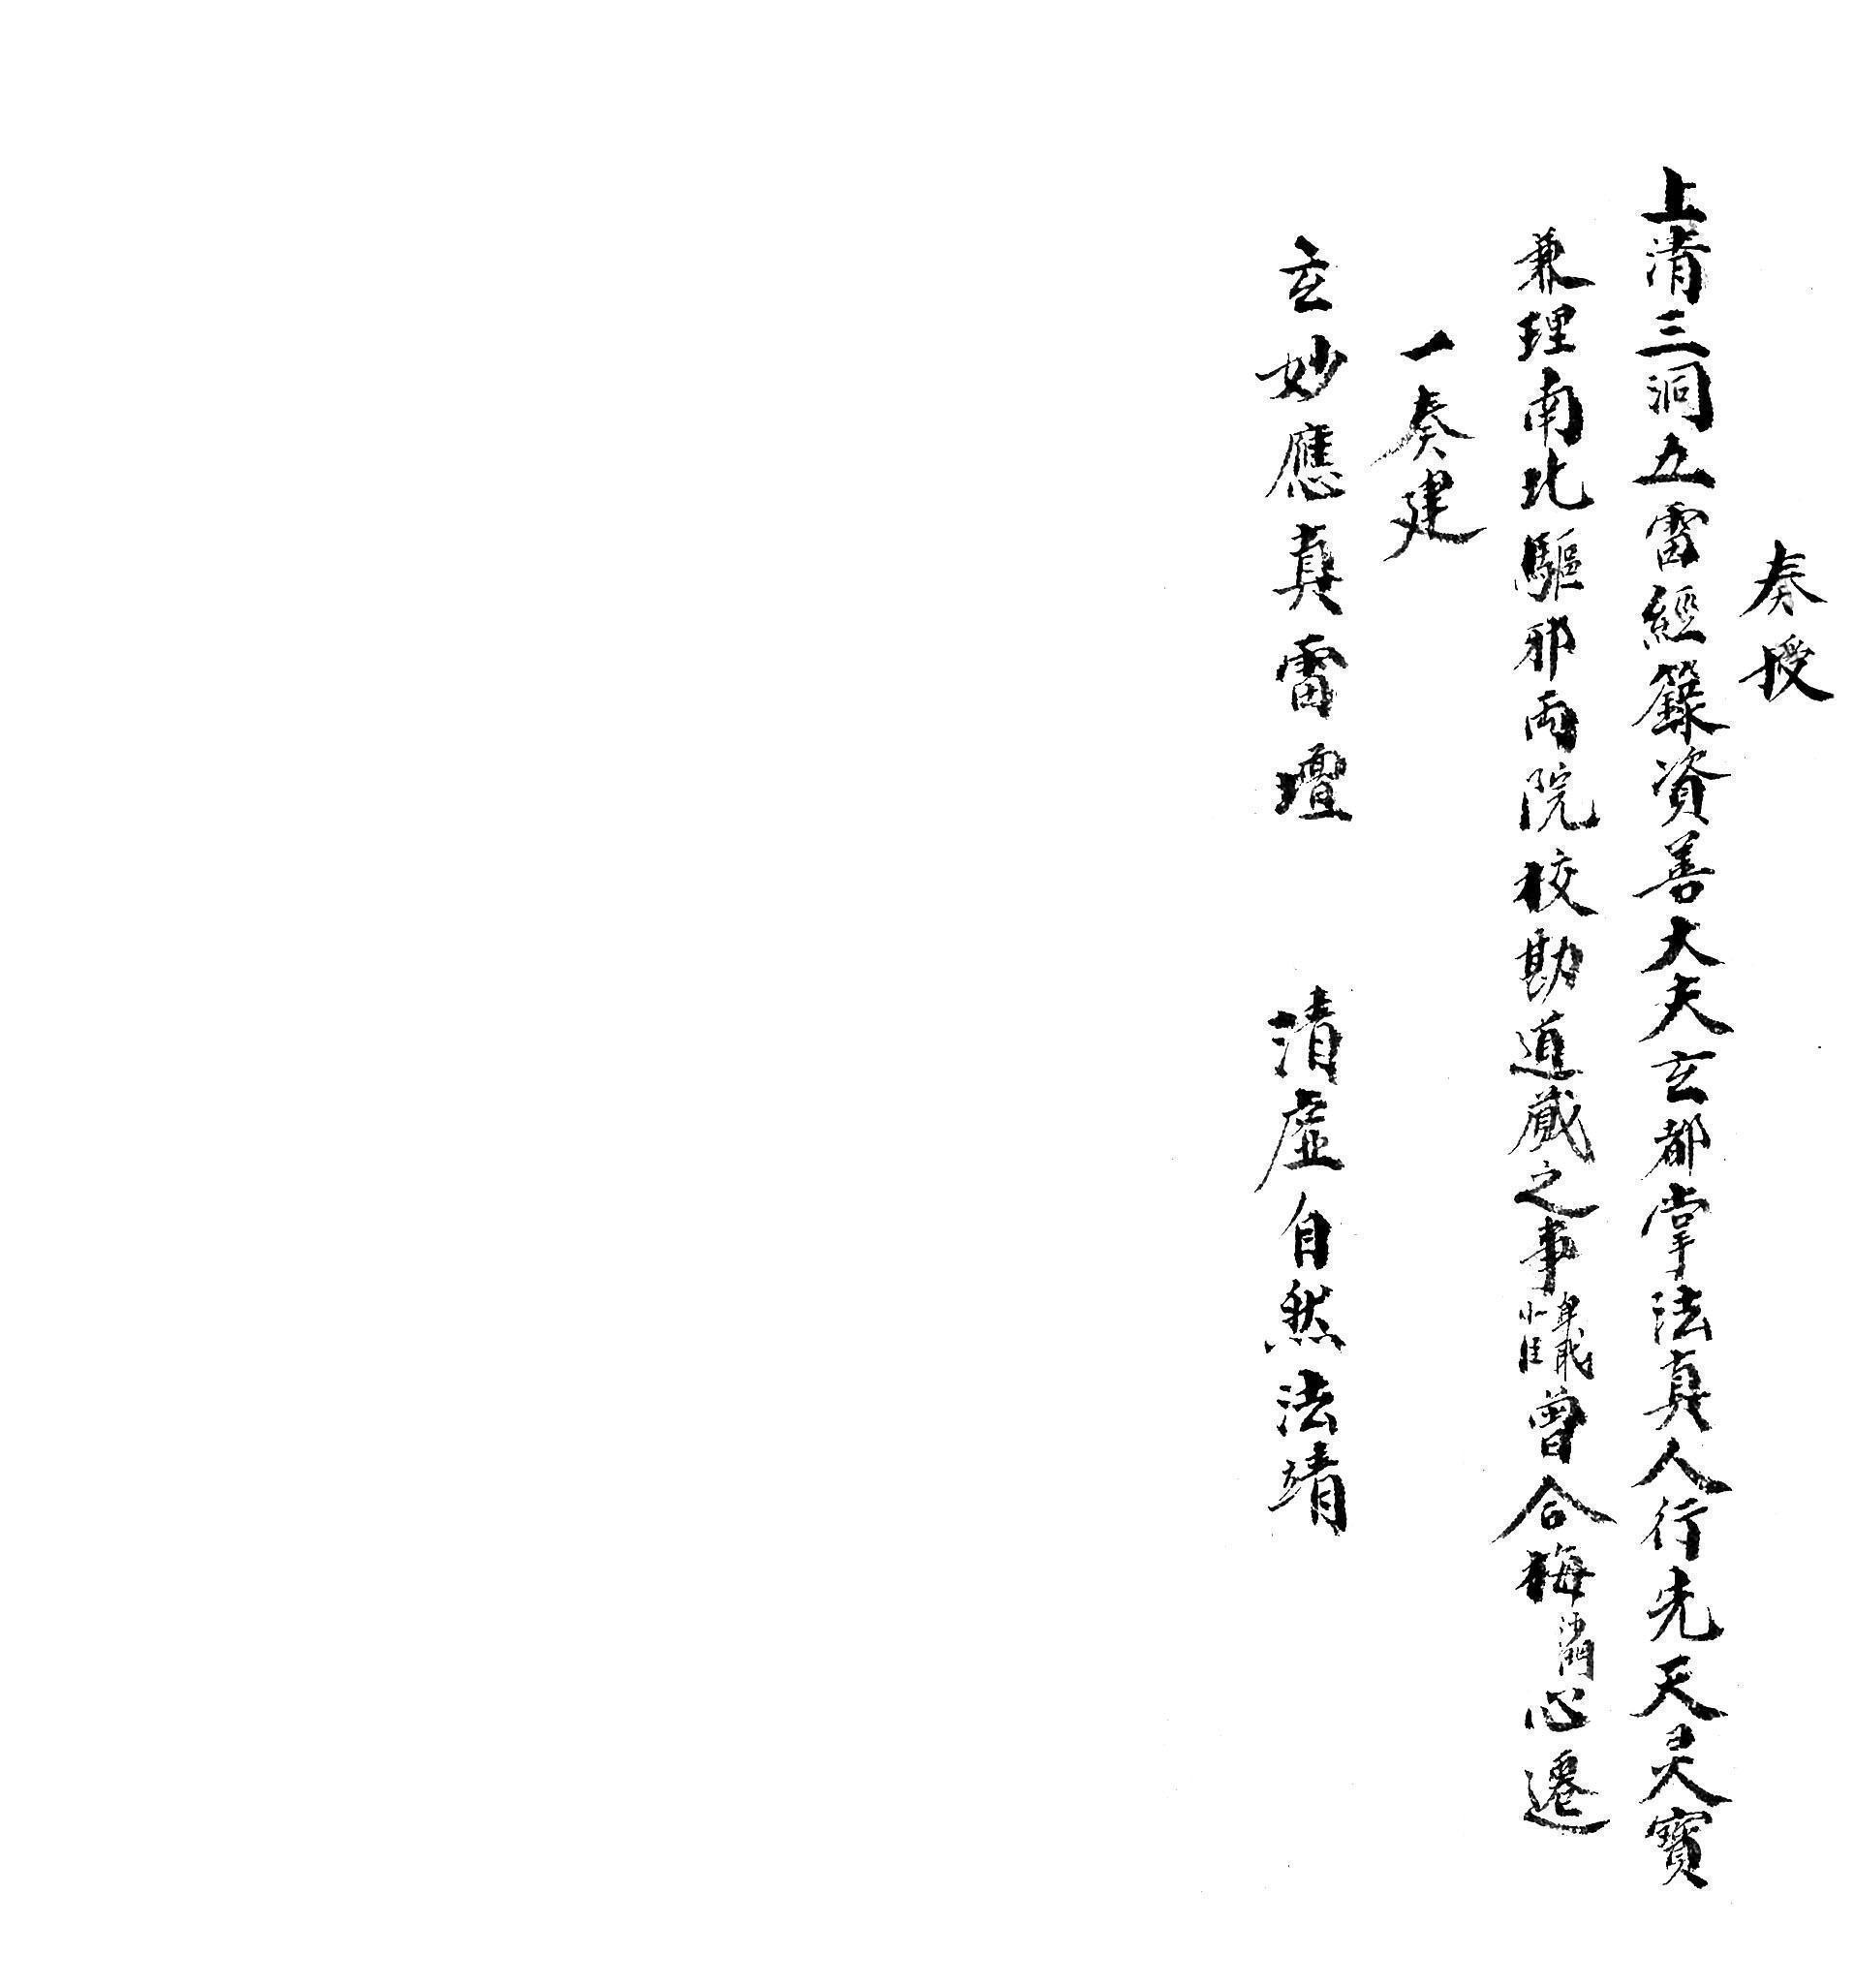 奏授
上清三洞五雷經籙資善大夫玄都掌法真人行先天灵寶
兼理南北驅邪兩院校勘道藏之事曾合梅心遷
一奏建
玄妙應真雷壇 清虛自然法靖